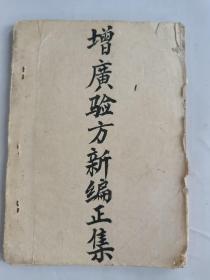 增廣验方新编正集